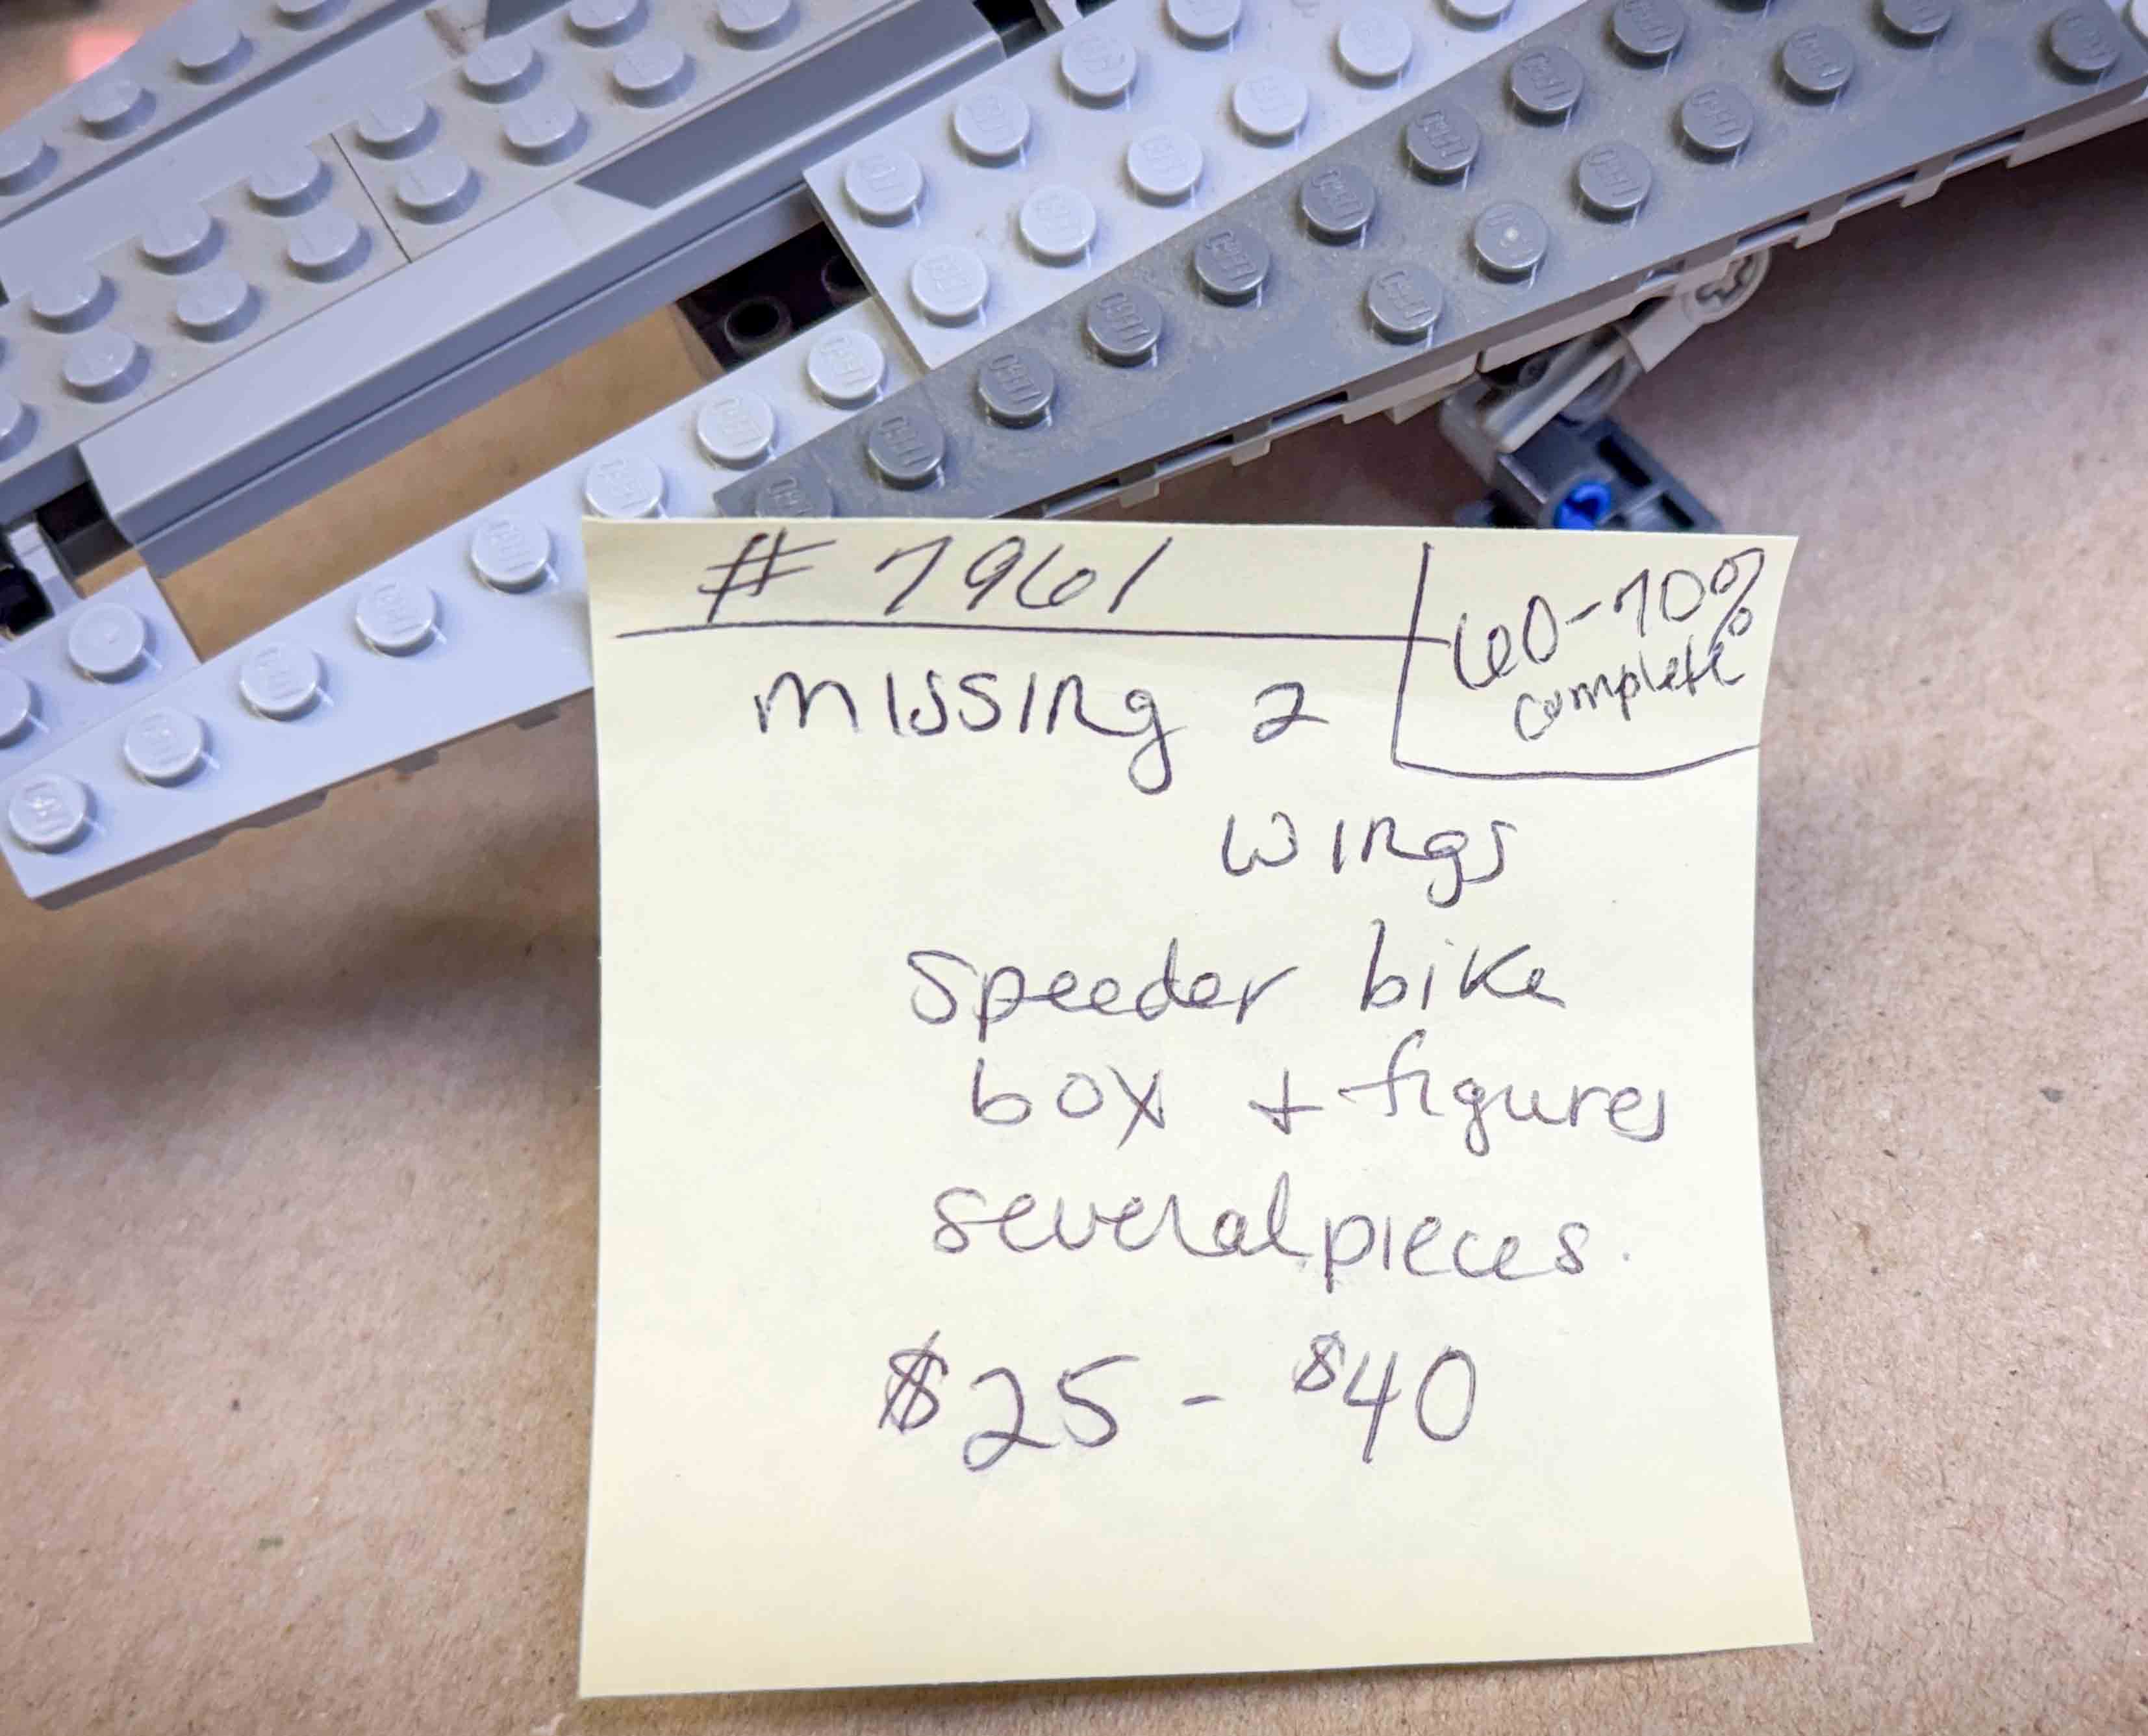 # 7961
60-70%
complete
missing 2
wings
speeder bike
box + figures
several pieces.
$25 - $40